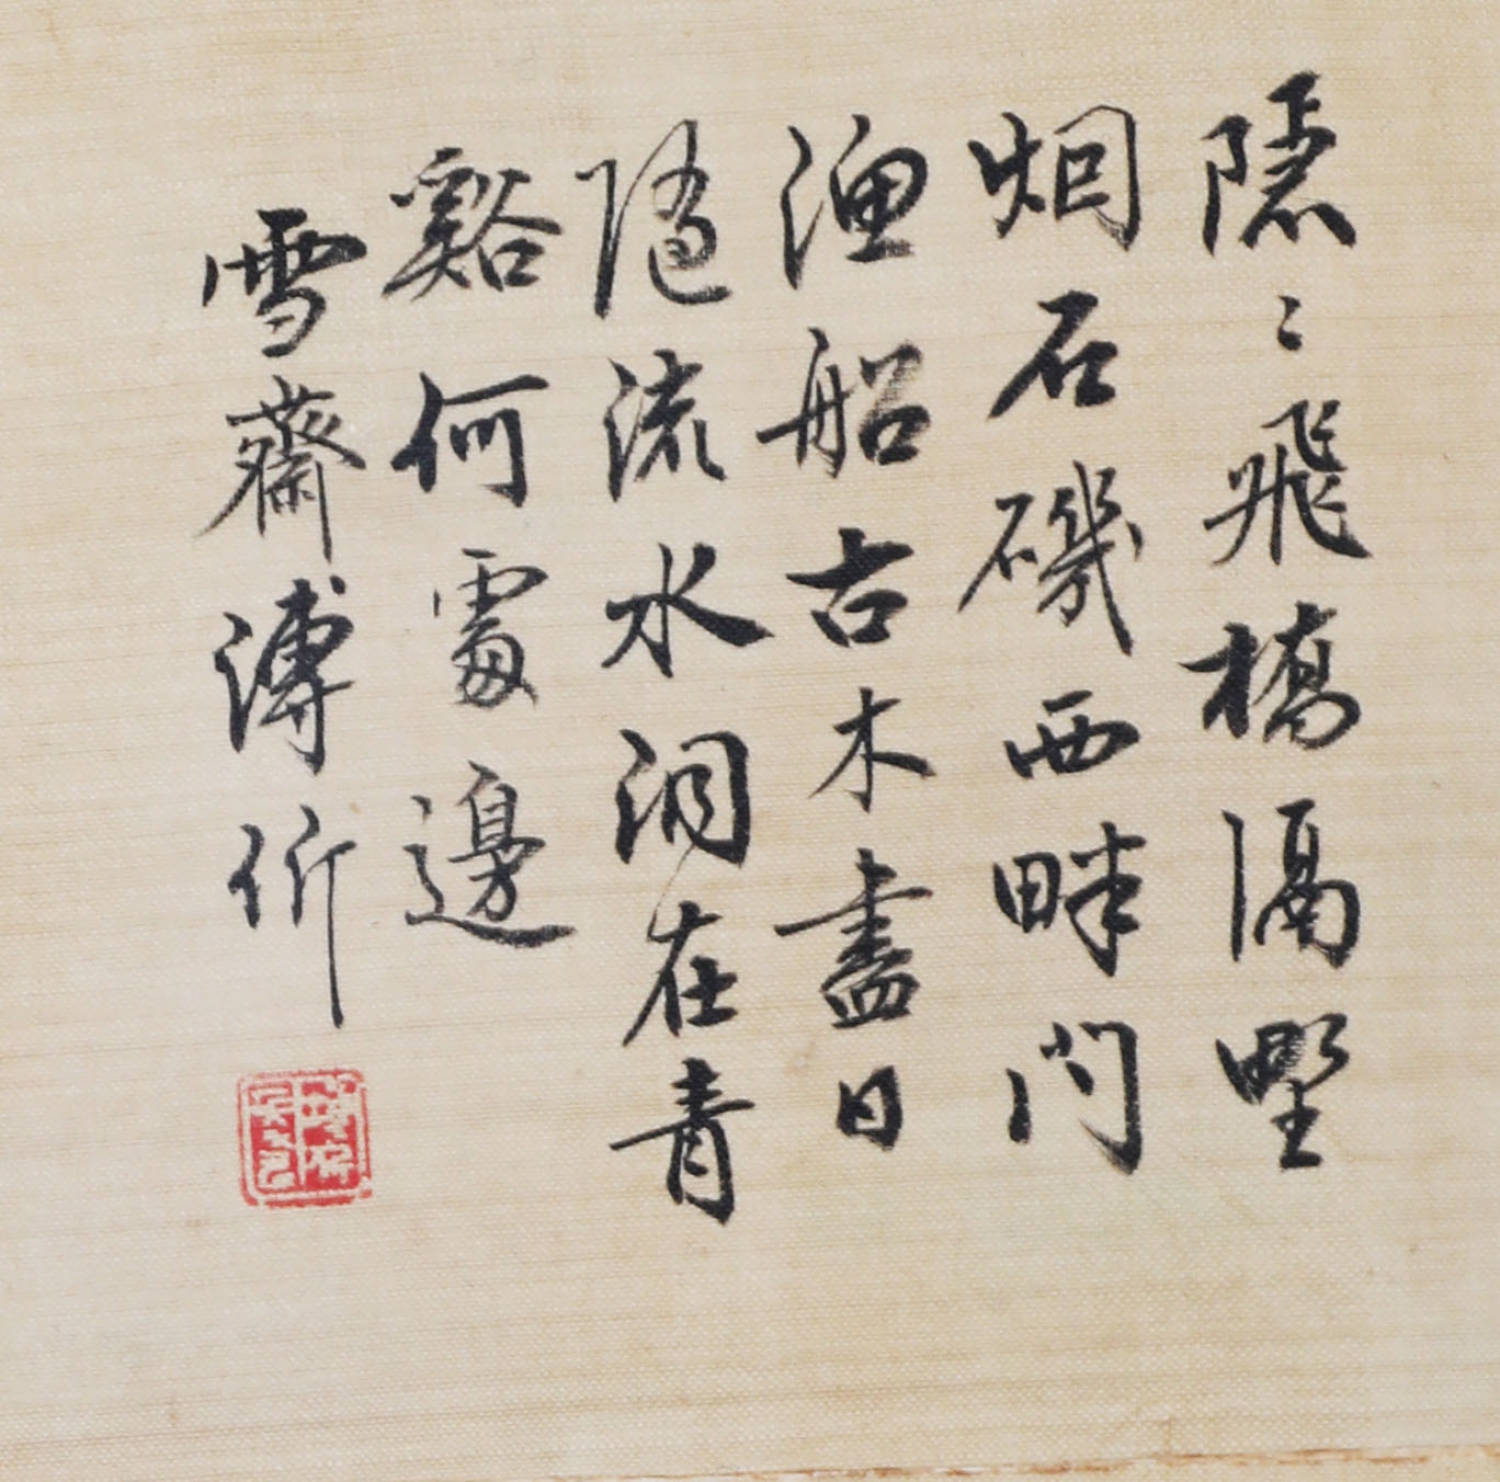 隱〻飛橋隔野
烟石磯西畔問
漁船古木盡日
随流水洞在青
谿何處邊
雪齋溥伒